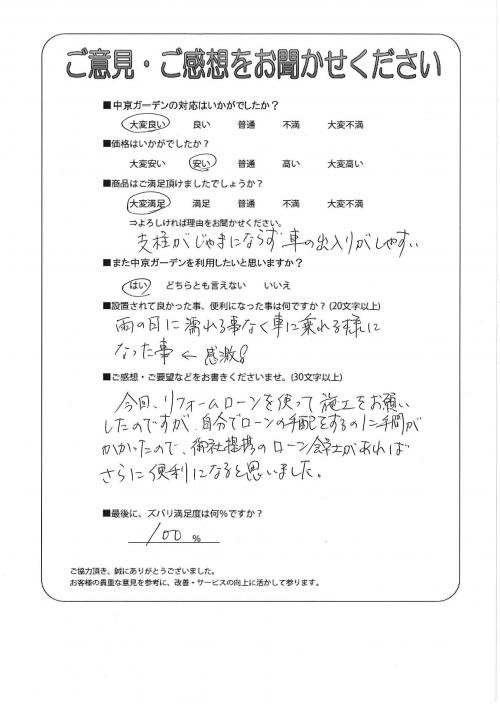 ご意見・ご感想をお聞かせください
■中京ガーデンの対応はいかがでしたか？
大変良い 良い 普通 不満 大変不満
■価格はいかがでしたか？
大変安い 安い 普通 高い 大変高い
■商品はご満足頂けましたでしょうか？
大変満足 満足 普通 不満 大変不満
⇒よろしければ理由をお聞かせください。
支柱がじゃまにならず車の出入りがしやすい
■また中京ガーデンを利用したいと思いますか？
はい どちらとも言えない いいえ
■設置されて良かった事、便利になった事は何ですか？(20文字以上)
雨の日に濡れる事なく車に乗れる様に
なった事 ← 感激!
■ご感想・ご要望などをお書きくださいませ。(30文字以上)
今回、リフォームローンを使って施工をお願い
したのですが、自分でローンの手配をするのに手間が
かかったので、御社提携のローン会社があれば
さらに便利になると思いました。
■最後に、ズバリ満足度は何％ですか？
100 %
ご協力頂き、誠にありがとうございました。
お客様の貴重な意見を参考に、改善・サービスの向上に活かして参ります。